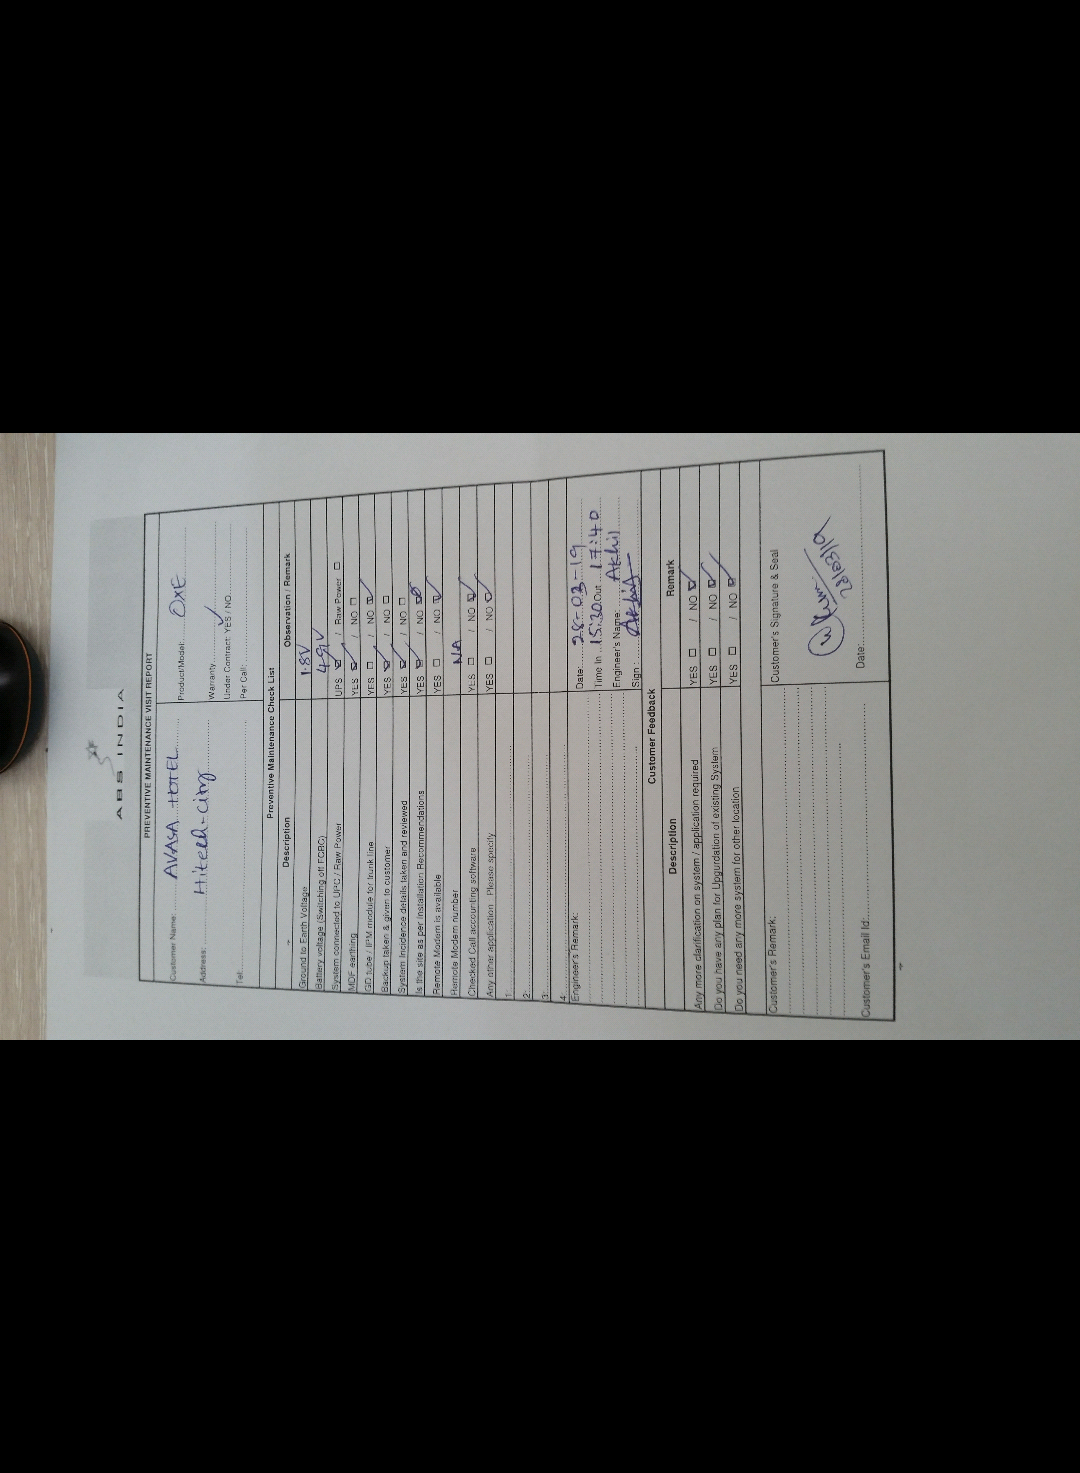 ABS INDIA
PREVENTIVE MAINTENANCE VISIT REPORT
Customer Name: AVASA HOTEL
Product/Model: OXE
Address: Hitech-City
Warranty
Under Contract: YES / NO
Tel:
Per Call:
Preventive Maintenance Check List
Description Observation / Remark
Ground to Earth Voltage 1.8V
Battery voltage (Switching off FCBC)
System connected to UPC / Raw Power UPS ☑ / Raw Power ☐
MDF earthing YES ☑ / NO ☐
GD tube / IPM module for trunk line YES ☐ / NO ☑
Backup taken & given to customer YES ☑ / NO ☐
System Incidence details taken and reviewed YES ☑ / NO ☐
Is the site as per Installation Recommendations YES ☑ / NO
Remote Modem is available YES ☐ / NO ☑
Remote Modem number NA
Checked Call acccounting software YES ☐ / NO ☑
Any other application Please specify YES ☐ / NO ☑
1
2
3
4
Engineer's Remark:
Date: 28-03-19
Time In 15:30 Out 17:40
Engineer's Name: Akhil
Sign:
Customer Feedback
Description Remark
Any more clarification on system / application required YES ☐ / NO ☑
Do you have any plan for Upgurdation of existing System YES ☐ / NO ☑
Do you need any more system for other location YES ☐ / NO ☑
Customer's Remark:
Customer's Signature & Seal
28/03/19
Customer's Email Id:
Date: